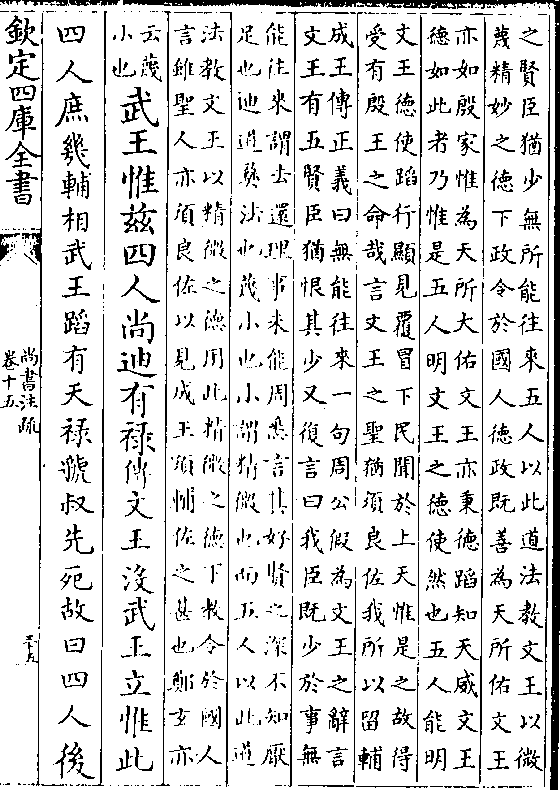 之賢臣猶少無所能往來五人以此道法教文王以微
蔑精妙之德下政令於國人德政既善為天所佑文王
亦如殷家惟為天所大佑文王亦秉德蹈知天威文王
德如此者乃惟是五人明文王之德使然也五人能明
文王德使蹈行顯見覆冒下民聞於上天惟是之故得
受有殷王之命哉言文王之聖猶須良佐我所以留輔
成王傳正義曰無能往來一句周公假為文王之辭言
文王有五賢臣猶恨其少又復言曰我臣既少於事無
能往來謂去還理事未能周悉言其好賢之深不知厭
足也迪道彝法也蔑小也小謂精微也而五人以此道
法教文王以精微之德用此精微之德下教令於國人
言雖聖人亦須良佐以見成王須輔佐之甚也鄭玄亦
云蔑
小也
武王惟茲四人尚迪有祿傳文王沒武王立惟此
四人庶幾輔相武王蹈有天祿虢叔先死故曰四人後
欽定四庫全書
尚書注疏
卷十五
三十五